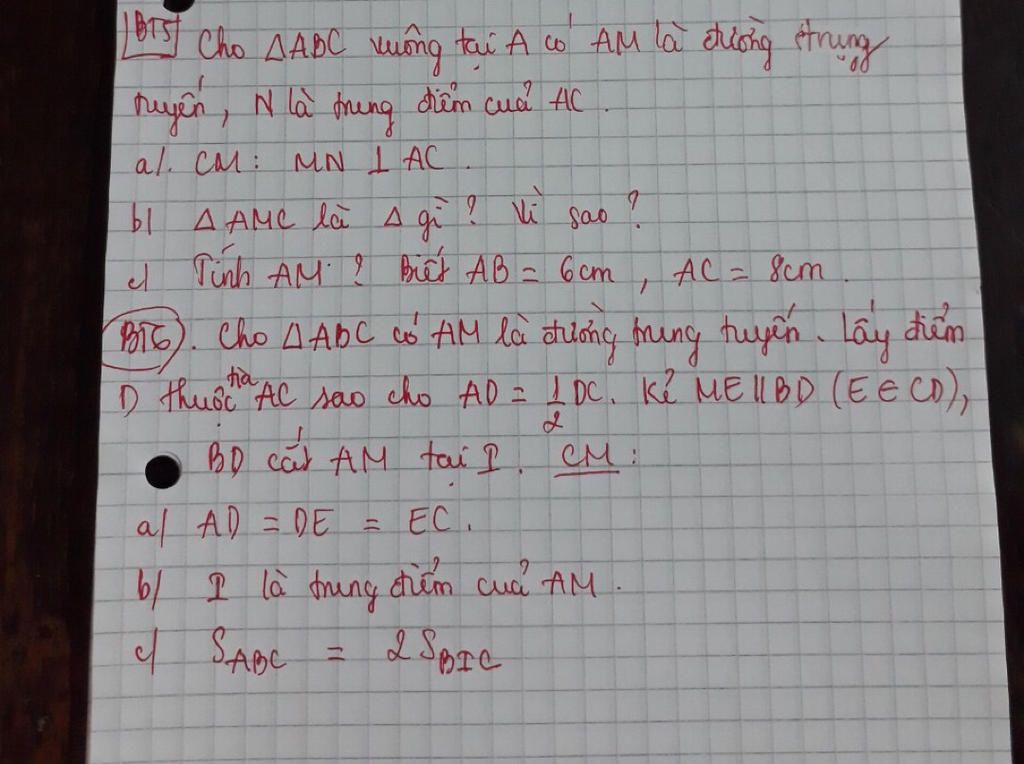 BT5 Cho ΔABC vuông tại A có AM là đường trung
tuyến, N là trung điểm của AC.
a/. CM: MN ⊥ AC.
b/ ΔAMC là Δ gì? Vì sao?
c/ Tính AM? Biết AB = 6cm, AC = 8cm.
BT6. Cho ΔABC có AM là đường trung tuyến. Lấy điểm
D thuộc tia AC sao cho AD = 1/2 DC. Kẻ ME // BD (E ∈ CD),
BD cắt AM tại I. CM:
a/ AD = DE = EC.
b/ I là trung điểm của AM.
c/ S_ABC = 2S_BIC